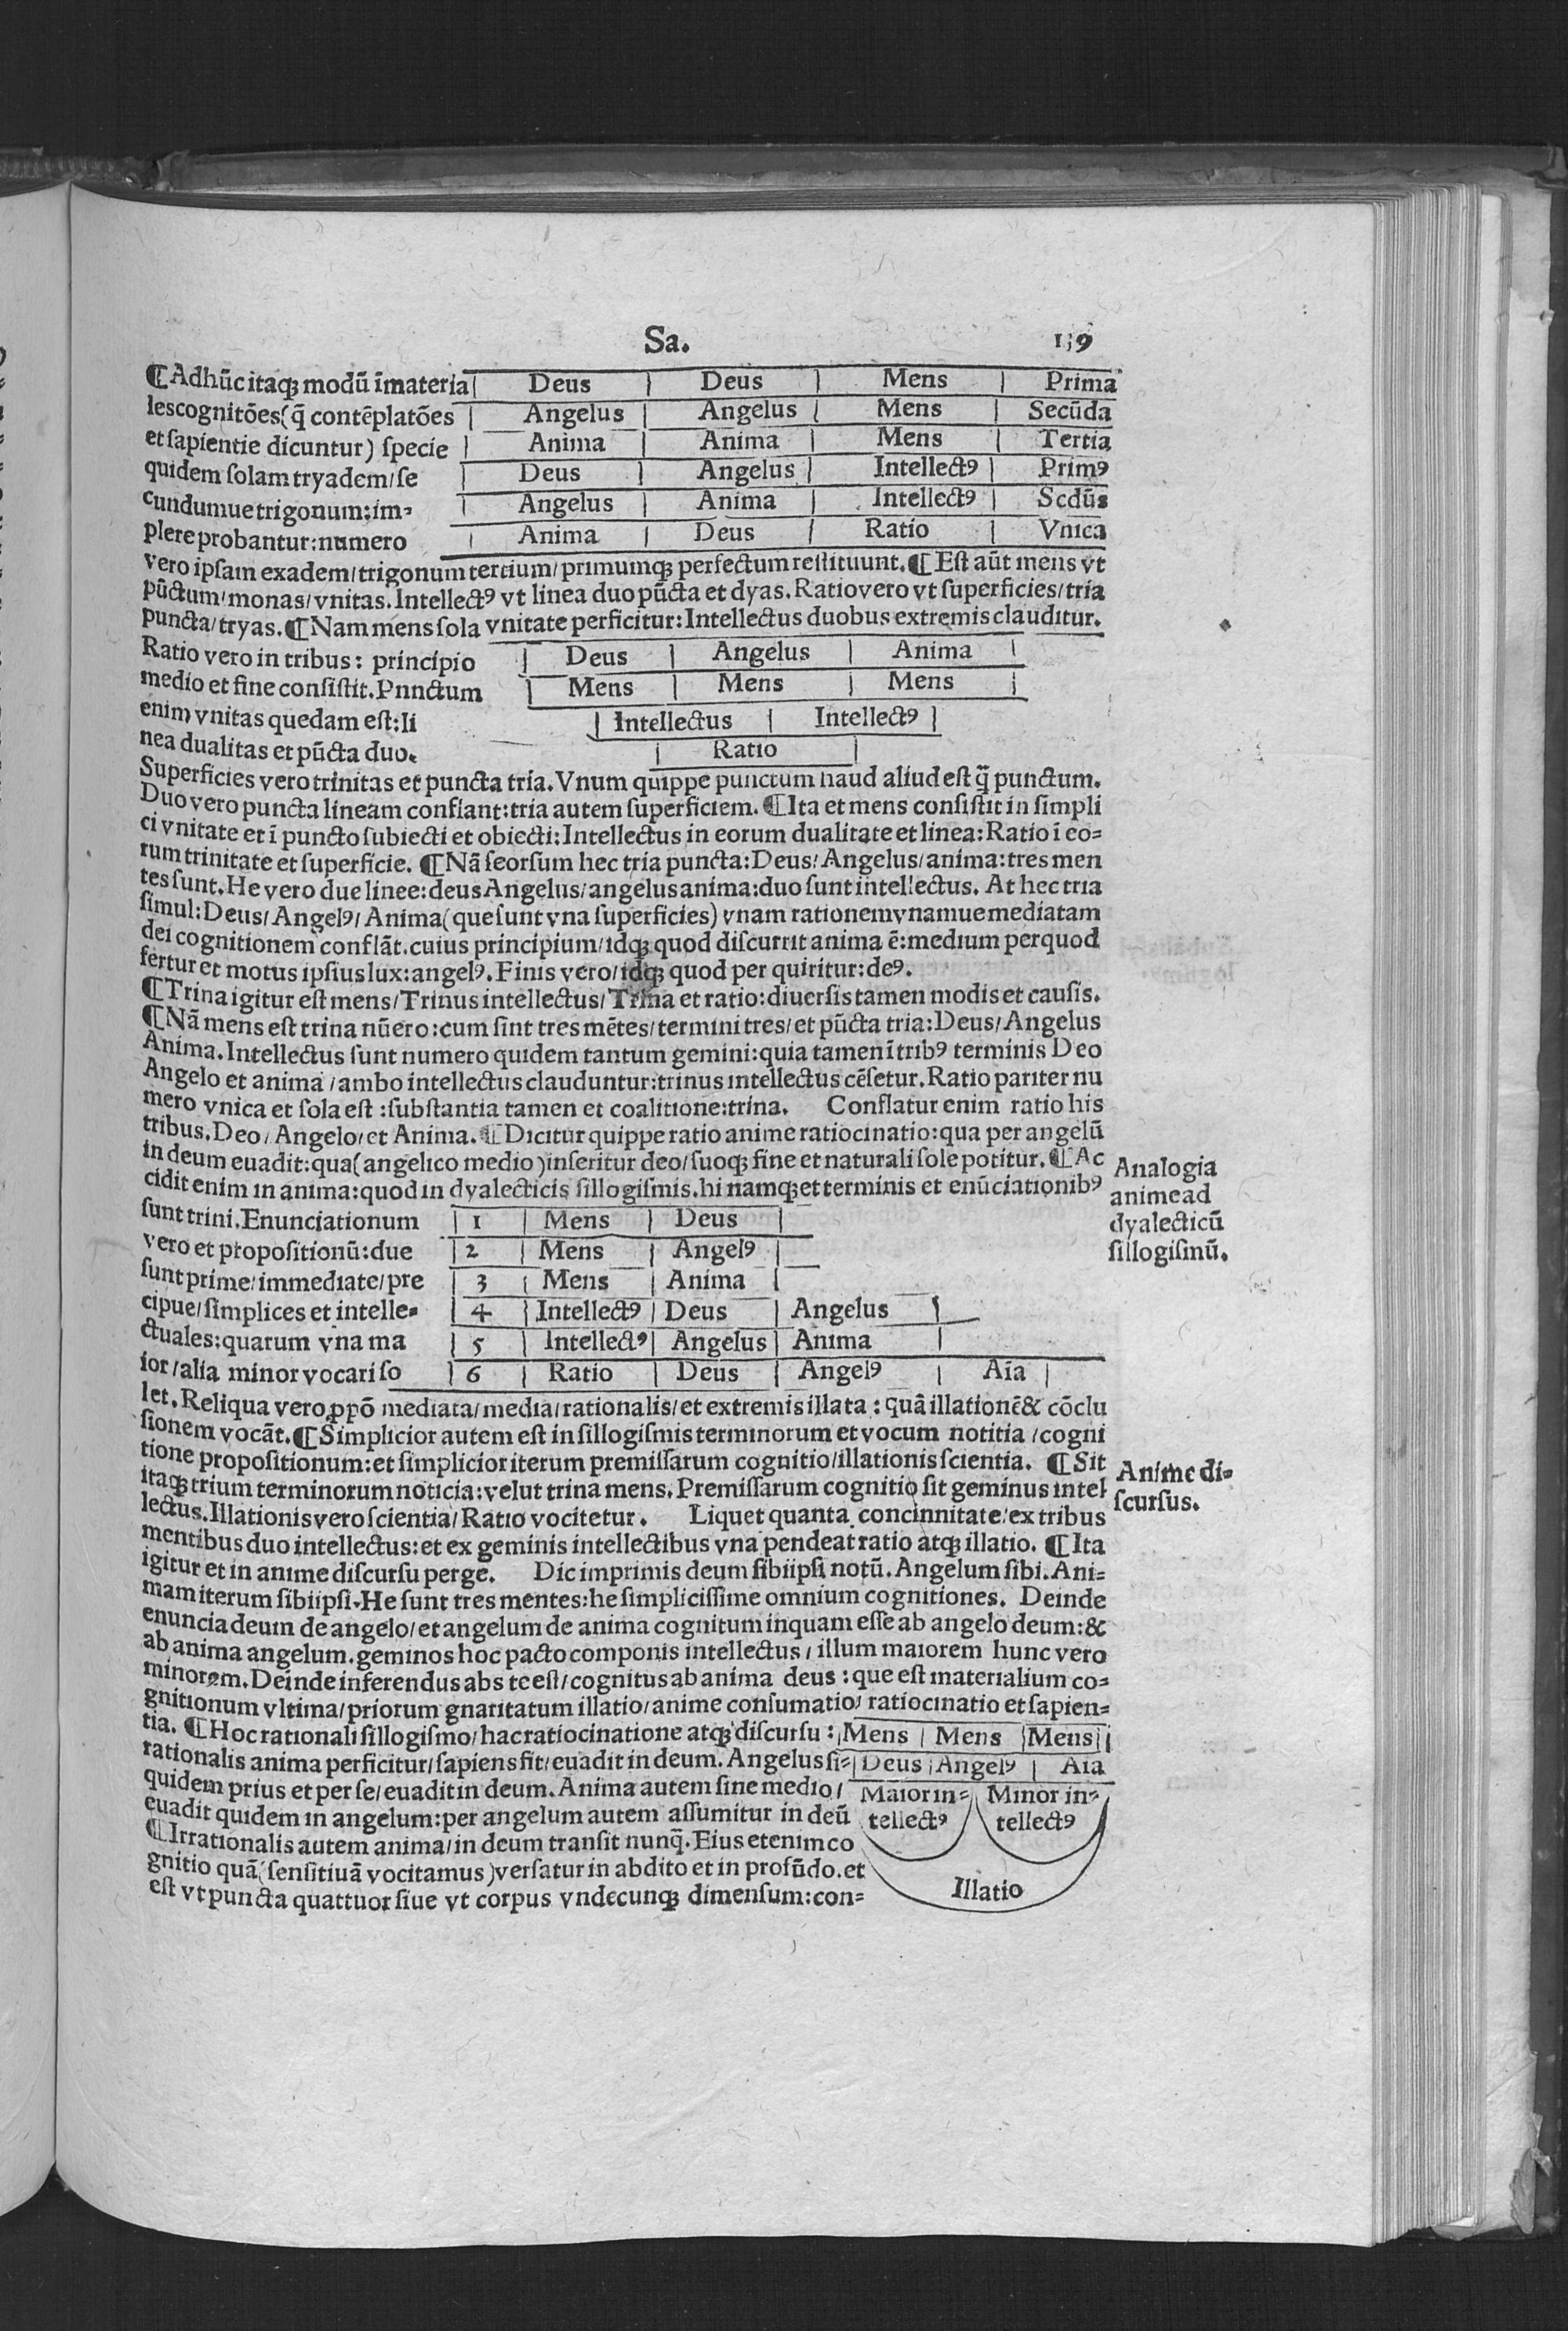 Sa. 139
¶Adhūc itaqꝫ modū īmateria | Deus | Deus | Mens | Prima
lescognitōes(q̄ contēplatōes | Angelus | Angelus | Mens | Secūda
et sapientie dicuntur) specie | Anima | Anima | Mens | Tertia
quidem solam tryadem/se | Deus | Angelus | Intellectꝰ | Primꝰ
cundumue trigonum:im- | Angelus | Anima | Intellectꝰ | Scdūs
plere probantur:numero | Anima | Deus | Ratio | Vnica
vero ipsam exadem/trigonum tertium/primumqꝫ perfectum restituunt.¶Est aūt mens vt
pūctum/monas/vnitas.Intellectꝰ vt linea duo pūcta et dyas.Ratio vero vt superficies/tria
puncta/tryas.¶Nam mens sola vnitate perficitur:Intellectus duobus extremis clauditur.
Ratio vero in tribus: principio | Deus | Angelus | Anima |
medio et fine consistit.Pnnctum | Mens | Mens | Mens |
enim vnitas quedam est:li | Intellectus | Intellectꝰ |
nea dualitas et pūcta duo. | Ratio |
Superficies vero trinitas et puncta tria.Vnum quippe punctum haud aliud est q̄ punctum.
Duo vero puncta lineam conflant:tria autem superficiem.¶Ita et mens consistit in simpli
ci vnitate et ī puncto subiecti et obiecti:Intellectus in eorum dualitate et linea:Ratio ī eo-
rum trinitate et superficie.¶Nā seorsum hec tria puncta:Deus/Angelus/anima:tres men
tes sunt.He vero due linee:deus Angelus/angelus anima:duo sunt intellectus. At hec tria
simul:Deus/Angelꝰ/Anima(que sunt vna superficies) vnam rationem vnamue mediatam
dei cognitionem conflāt.cuius principium/idqꝫ quod discurrit anima ē:medium per quod
fertur et motus ipsius lux:angelꝰ.Finis vero/idqꝫ quod per quiritur:deꝰ.
¶Trina igitur est mens/Trinus intellectus/Trina et ratio:diuersis tamen modis et causis.
¶Nā mens est trina nūero:cum sint tres mētes/termini tres/et pūcta tria:Deus/Angelus
Anima.Intellectus sunt numero quidem tantum gemini:quia tamen ī tribꝰ terminis Deo
Angelo et anima/ambo intellectus clauduntur:trinus intellectus cēsetur.Ratio pariter nu
mero vnica et sola est:substantia tamen et coalitione:trina. Conflatur enim ratio his
tribus.Deo/Angelo/et Anima.¶Dicitur quippe ratio anime ratiocinatio:qua per angelū
in deum euadit:qua(angelico medio)inseritur deo/suoqꝫ fine et naturali sole potitur.¶Ac
cidit enim in anima:quod in dyalecticis sillogismis.hi namqꝫ et terminis et enūciationibꝰ
Analogia
anime ad
dyalecticū
sillogismū.
sunt trini.Enunciationum | 1 | Mens | Deus |
vero et propositionū:due | 2 | Mens | Angelꝰ |
sunt prime/immediate/pre | 3 | Mens | Anima |
cipue/simplices et intelle- | 4 | Intellectꝰ | Deus | Angelus |
ctuales:quarum vna ma | 5 | Intellectꝰ | Angelus | Anima |
ior/alia minor vocari so | 6 | Ratio | Deus | Angelꝰ | Aīa |
let.Reliqua vero ꝓpō mediata/media/rationalis/et extremis illata:quā illationē& cōclu
sionem vocāt.¶Simplicior autem est in sillogismis terminorum et vocum notitia/cogni
tione propositionum:et simplicior iterum premissarum cognitio/illationis scientia. ¶Sit
itaqꝫ trium terminorum noticia:velut trina mens.Premissarum cognitio sit geminus intel
lectus.Illationis vero scientia/Ratio vocitetur. Liquet quanta concinnitate/ex tribus
Anime di-
scursus.
mentibus duo intellectus:et ex geminis intellectibus vna pendeat ratio atqꝫ illatio.¶Ita
igitur et in anime discursu perge. Dic imprimis deum sibiipsi notū.Angelum sibi.Ani-
mam iterum sibiipsi.He sunt tres mentes:he simplicissime omnium cognitiones. Deinde
enuncia deum de angelo/et angelum de anima cognitum inquam esse ab angelo deum:&
ab anima angelum.geminos hoc pacto componis intellectus/illum maiorem hunc vero
minorem.Deinde inferendus abs te est/cognitus ab anima deus:que est materialium co-
gnitionum vltima/priorum gnaritatum illatio/anime consumatio/ratiocinatio et sapien-
tia.¶Hoc rationali sillogismo/hac ratiocinatione atqꝫ discursu: | Mens | Mens | Mens |
rationalis anima perficitur/sapiens fit/euadit in deum.Angelus si- | Deus | Angelꝰ | Aīa
quidem prius et per se/euadit in deum.Anima autem sine medio/ Maior in- Minor in-
euadit quidem in angelum:per angelum autem assumitur in deū tellectꝰ tellectꝰ
¶Irrationalis autem anima/in deum transit nunq̄.Eius etenim co
gnitio quā(sensitiuā vocitamus)versatur in abdito et in profūdo.et
est vt puncta quattuor siue vt corpus vndecunqꝫ dimensum:con- Illatio